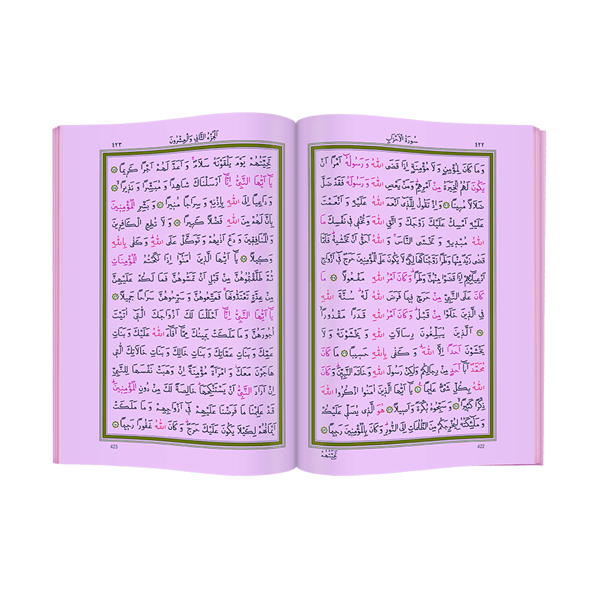 ٤٢٢
سُورَةُ الْاَحْزَابِ
وَمَا كَانَ لِمُؤْمِنٍ وَلَا مُؤْمِنَةٍ اِذَا قَضَى اللّٰهُ وَرَسُولُهُٓ اَمْرًا اَنْ
يَكُونَ لَهُمُ الْخِيَرَةُ مِنْ اَمْرِهِمْ وَمَنْ يَعْصِ اللّٰهَ وَرَسُولَهُ فَقَدْ ضَلَّ
ضَلَالًا مُبِينًا وَاِذْ تَقُولُ لِلَّذِٓي اَنْعَمَ اللّٰهُ عَلَيْهِ وَاَنْعَمْتَ
عَلَيْهِ اَمْسِكْ عَلَيْكَ زَوْجَكَ وَاتَّقِ اللّٰهَ وَتُخْفِي فِي نَفْسِكَ مَا
اللّٰهُ مُبْدِيهِ وَتَخْشَى النَّاسَ وَاللّٰهُ اَحَقُّ اَنْ تَخْشٰيهُ فَلَمَّا
قَضٰى زَيْدٌ مِنْهَا وَطَرًا زَوَّجْنَاكَهَا لِكَيْ لَا يَكُونَ عَلَى الْمُؤْمِنِينَ حَرَجٌ فِٓي اَزْوَاجِ
اَدْعِيَٓائِهِمْ اِذَا قَضَوْا مِنْهُنَّ وَطَرًا وَكَانَ اَمْرُ اللّٰهِ مَفْعُولًا مَا
كَانَ عَلَى النَّبِيِّ مِنْ حَرَجٍ فِيمَا فَرَضَ اللّٰهُ لَهُ سُنَّةَ اللّٰهِ
فِي الَّذِينَ خَلَوْا مِنْ قَبْلُ وَكَانَ اَمْرُ اللّٰهِ قَدَرًا مَقْدُورًا
اَلَّذِينَ يُبَلِّغُونَ رِسَالَاتِ اللّٰهِ وَيَخْشَوْنَهُ وَلَا
يَخْشَوْنَ اَحَدًا اِلَّا اللّٰهَ وَكَفٰى بِاللّٰهِ حَسِيبًا مَا كَانَ
مُحَمَّدٌ اَبَٓا اَحَدٍ مِنْ رِجَالِكُمْ وَلٰكِنْ رَسُولَ اللّٰهِ وَخَاتَمَ النَّبِيِّينَ وَكَانَ
اللّٰهُ بِكُلِّ شَيْءٍ عَلِيمًا يَٓا اَيُّهَا الَّذِينَ اٰمَنُوا اذْكُرُوا اللّٰهَ
ذِكْرًا كَثِيرًا وَسَبِّحُوهُ بُكْرَةً وَاَصِيلًا هُوَ الَّذِي يُصَلِّي عَلَيْكُمْ
وَمَلٰٓئِكَتُهُ لِيُخْرِجَكُمْ مِنَ الظُّلُمَاتِ اِلَى النُّورِ وَكَانَ بِالْمُؤْمِنِينَ رَحِيمًا
422
تَحِيَّتُهُمْ
اَلْجُزْءُ الثَّانِي وَالْعِشْرُونَ
٤٢٣
تَحِيَّتُهُمْ يَوْمَ يَلْقَوْنَهُ سَلَامٌ وَاَعَدَّ لَهُمْ اَجْرًا كَرِيمًا
يَٓا اَيُّهَا النَّبِيُّ اِنَّٓا اَرْسَلْنَاكَ شَاهِدًا وَمُبَشِّرًا وَنَذِيرًا
وَدَاعِيًا اِلَى اللّٰهِ بِاِذْنِهِ وَسِرَاجًا مُنِيرًا وَبَشِّرِ الْمُؤْمِنِينَ
بِاَنَّ لَهُمْ مِنَ اللّٰهِ فَضْلًا كَبِيرًا وَلَا تُطِعِ الْكَافِرِينَ
وَالْمُنَافِقِينَ وَدَعْ اَذٰيهُمْ وَتَوَكَّلْ عَلَى اللّٰهِ وَكَفٰى بِاللّٰهِ
وَكِيلًا يَٓا اَيُّهَا الَّذِينَ اٰمَنُٓوا اِذَا نَكَحْتُمُ الْمُؤْمِنَاتِ
ثُمَّ طَلَّقْتُمُوهُنَّ مِنْ قَبْلِ اَنْ تَمَسُّوهُنَّ فَمَا لَكُمْ عَلَيْهِنَّ
مِنْ عِدَّةٍ تَعْتَدُّونَهَا فَمَتِّعُوهُنَّ وَسَرِّحُوهُنَّ سَرَاحًا جَمِيلًا
يَٓا اَيُّهَا النَّبِيُّ اِنَّٓا اَحْلَلْنَا لَكَ اَزْوَاجَكَ الّٰتِٓي اٰتَيْتَ
اُجُورَهُنَّ وَمَا مَلَكَتْ يَمِينُكَ مِمَّٓا اَفَٓاءَ اللّٰهُ عَلَيْكَ وَبَنَاتِ
عَمِّكَ وَبَنَاتِ عَمَّاتِكَ وَبَنَاتِ خَالِكَ وَبَنَاتِ خَالَاتِكَ الّٰتِي
هَاجَرْنَ مَعَكَ وَامْرَاَةً مُؤْمِنَةً اِنْ وَهَبَتْ نَفْسَهَا لِلنَّبِيِّ
اِنْ اَرَادَ النَّبِيُّ اَنْ يَسْتَنْكِحَهَا خَالِصَةً لَكَ مِنْ دُونِ الْمُؤْمِنِينَ
قَدْ عَلِمْنَا مَا فَرَضْنَا عَلَيْهِمْ فِٓي اَزْوَاجِهِمْ وَمَا مَلَكَتْ
اَيْمَانُهُمْ لِكَيْلَا يَكُونَ عَلَيْكَ حَرَجٌ وَكَانَ اللّٰهُ غَفُورًا رَحِيمًا
423